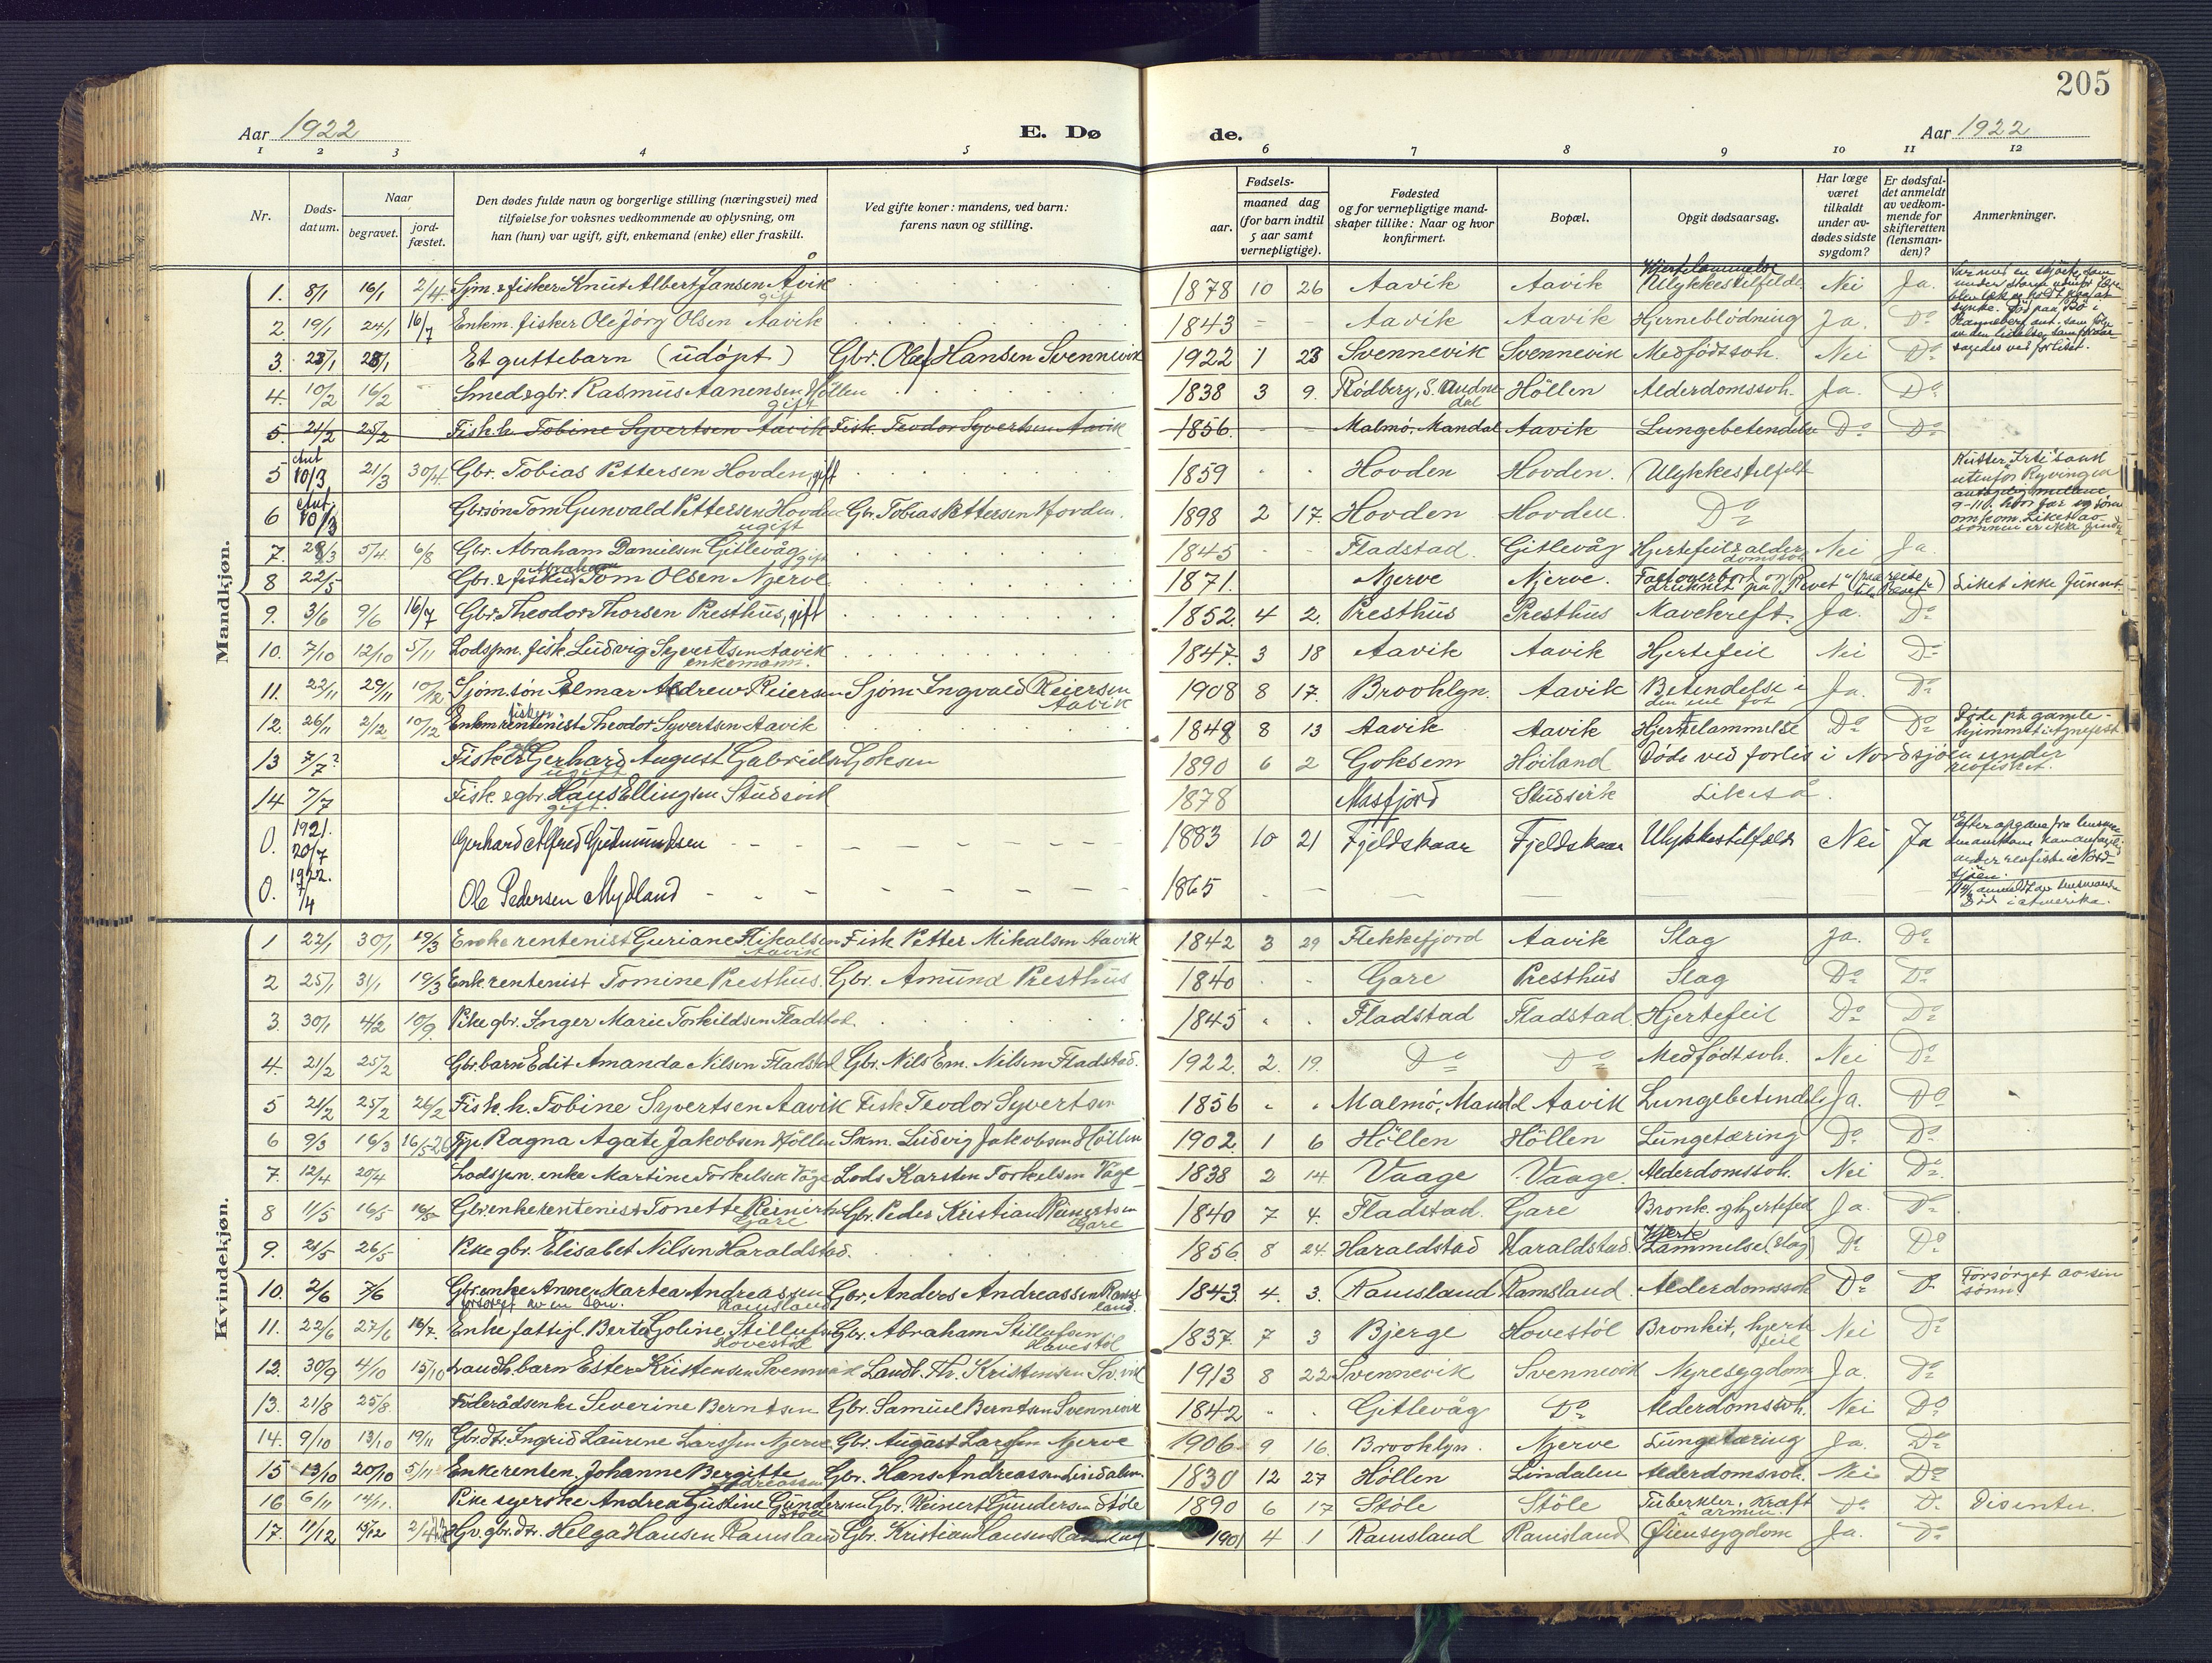 205
Aar 1922 E. Dø de. Aar 1922
1 2 3 4 5 6 7 8 9 10 11 12
Nr.
Døds-
datum.
Naar
begravet.
jord-
fæstet.
Den dødes fulde navn og borgerlige stilling (næringsvei) med
tilføielse for voksnes vedkommende av oplysning, om
han (hun) var ugift, gift, enkemand (enke) eller fraskilt.
Ved gifte koner: mandens, ved barn:
farens navn og stilling.
Fødsels-
aar.
maaned dag
(for barn indtil
5 aar samt
vernepligtige).
Fødested
og for vernepligtige mand-
skaper tillike: Naar og hvor
konfirmert.
Bopæl.
Opgit dødsaarsag.
Har læge
været
tilkaldt
under av-
dødes sidste
sygdom?
Er dødsfal-
det anmeldt
av vedkom-
mende for
skifteretten
(lensman-
den)?
Anmerkninger.
Mandkjøn.
1. 8/1 16/1 2/4 Sjm. & fisker Knut Albert Jansen Åvik gift 1878 10 26 Aavik Aavik Hjertelammelse Ulykkestilfelde Nei Ja.
2. 19/1 24/1 16/7 Enkm. fisker Ole Jörg Olsen Aavik 1843 Aavik Aavik Hjerneblödning Ja. Do
3. 23/1 28/1 Et guttebarn (udöpt) Gbr. Olaf Hansen Svennevik 1922 1 23 Svennevik Svennevik Medfödt svh. Nei Do
4. 10/2 16/2 Smed & gbr. Rasmus Aanensen Höllen gift 1838 3 9. Rödberg, S. Audne-
dal Höllen Alderdomssvh. Ja. Do
5. 21/2 25/2 Fisk. h. Tobine Syvertsen Aavik Fisk. Teodor Syvertsen Aavik 1856. Malmö, Mandal Aavik Lungebetendelse Do Do
5 Ant 10/3 21/3 30/4 Gbr. Tobias Pettersen Hovden, gift 1859 Hovden Hovden. Ulykkestilfelt
Kutter "Erte" sank
utenfor Ryvingen
6 Ant. 10/3 Gbrsøn Tom Gunvald Pettersen Hovden ugift Gbr. Tobias Pettersen Hovden. 1898 2 17. Hovden Hovden. Do
7. 28/3 5/4 6/8 Gbr. Abraham Danielsen Gitlevåg gift 1845 Fladstad. Gitlevåg Hjertefeil & alder-
domssvh Nei Ja.
8 22/5 Gbr. & fisker Abraham Tom Olsen Njerve 1871. Njerve Njerve. Liket ikke funnet.
9. 3/6 9/6 16/7 Gbr. Theodor Thorsen Presthus, gift 1852. 4 2. Presthus Presthus Mavekreft. Ja. Do
10. 7/10 12/10 5/11 Lodspn. fisk. Ludvig Syvertsen Aavik enkemann. 1847. 3 18 Aavik Aavik Hjertefeil Nei Do
11. 22/11 29/11 10/12 Sjöm. sön Elmar Andrew Reiersen Sjöm. Ingvald Reiersen Aavik 1908 8 17. Brooklyn. Aavik Betendelse i
den ene fot Ja. Do
12. 26/11 2/12 10/12 Enkm rentenist fisker Theodor Syvertsen Aavik 1848 8 13 Aavik Aavik Hjertelammelse Do Do Döde på gamle-
hjemmet i
13 7/7? Fisker Gerhard August Gabrielsen Goksem ugift 1890 6 2 Goksem Höiland Döde ved forlis i Nordsjöen under
14 7/7 Fisk. & gbr. Hans Ellingsen Studsvik gift. 1878 Masfjord Studsvik Likeså.
0. 1921. 20/7 Gerhard Alfred Gudmundsen 1883 10 21 Fjeldskaar Fjeldskaar Ulykkestilfælde Nei Ja
0. 1922. 7/4 Ole Pedersen Mydland 1865
Död i Amerika.
Kvindekjøn.
1 22/1 30/1 19/3 Enke rentenist Guriane Mikalsen Aavik Fisk Petter Mikalsen Aavik 1842 3 29 Flekkefjord Aavik Slag Ja. Do
2 25/1 31/1 19/3 Enk. rentenist Tomine Presthus. Gbr. Amund Presthus 1840 Gare Presthus Slag Do Do
3. 30/1 4/2 10/9 Pike gbr. Inger Marie Torkildsen Fladstad. 1845 Fladstad Fladstad. Hjertefeil Do Do
4. 21/2 25/2 Gbr. barn Edit Amanda Nilsen Fladstad Gbr. Nils Em. Nilsen Fladstad. 1922. 2. 19. Do Do Medfödt svh. Nei Do
5 21/2 25/2 26/2 Fisk. h. Tobine Syvertsen Aavik Fisk Teodor Syvertsen 1856 Malmö, Mandal Aavik Lungebetendelse Ja. Do
6 9/3 16/3 Tjp. Ragna Agate Jakobsen Höllen Skm. Ludvig Jakobsen Höllen 1902. 1 6 Höllen Höllen Lungetæring Do Do
7. 12/4 20/4 Lodspn. enke Martine Torkelsen Våge Lods Karsten Torkelsen Våge 1838 2 14 Vaage Vaage. Alderdomssvh. Nei Do
8 11/5 16/5 16/5 Gbr. enke rentenist Tonette Reinertsen Gare Gbr. Peder Kristian Reinertsen Gare 1840 7 4. Fladstad. Gare Bronk. og hjertefeil Ja. Do
9. 21/5 26/5 Pike gbr. Elisabet Nilsen Haraldstad. 1856. 8 24. Haraldstad Haraldstad. Hjerte
Lammelse (slag) Do Do
10. 2/6 7/6 Gbr. enke Anne Martea Andreassen Ramsland
forsörget av en sön. Gbr. Anders Andreassen Rams-
land. 1843. 4. 3. Ramsland Ramsland. Alderdomssvh Do Do Forsörget av sin
sönn.
11. 22/6 27/6 16/7. Enke fattigl. Berte Goline Stillufsen Hovestöl Gbr. Abraham Stillufsen Havestöl 1837. 7 3 Bjerge Hovestöl Bronkit, hjerte
feil Nei Do
12. 30/9 4/10 15/10 Landh. barn Ester Kristensen Svennevik Landh. Th. Kristensen Sv.vik 1913 8 22 Svennevik Svennevik Nyresygdom Ja. Do
13. 21/8 25/8 Föderådsenke Severine Berntsen Gbr. Samuel Berntsen Svennevik 1842 Gitlevåg Do Alderdomssvh. Nei Do
14. 9/10 13/10 19/11 Gbr. dtr. Ingrid Laurine Larssen Njerve Gbr. August Larssen Njerve 1906. 9 16. Brooklyn. Njerve Lungetæring Ja. Do
15 13/10 20/10 5/11 Enke renten. Johanne Bergitte Andreassen Gbr. Hans Andreassen Lindalen. 1830 12 27 Höllen Lindalen Alderdomssvh. Nei Do
16 6/11 14/11. Pike syerske Andrea Gustine Gundersen Stöle Gbr. Reinert Gundersen Stöle 1890 6 17 Stöle Stöle Do D.
17. 11/12 15/12 Hjv. gbr. dtr. Helga Hansen Ramsland Gbr. Kristian Hansen Ramsland 1901 4 1 Ramsland Ramsland Öiensygdom Ja. Do